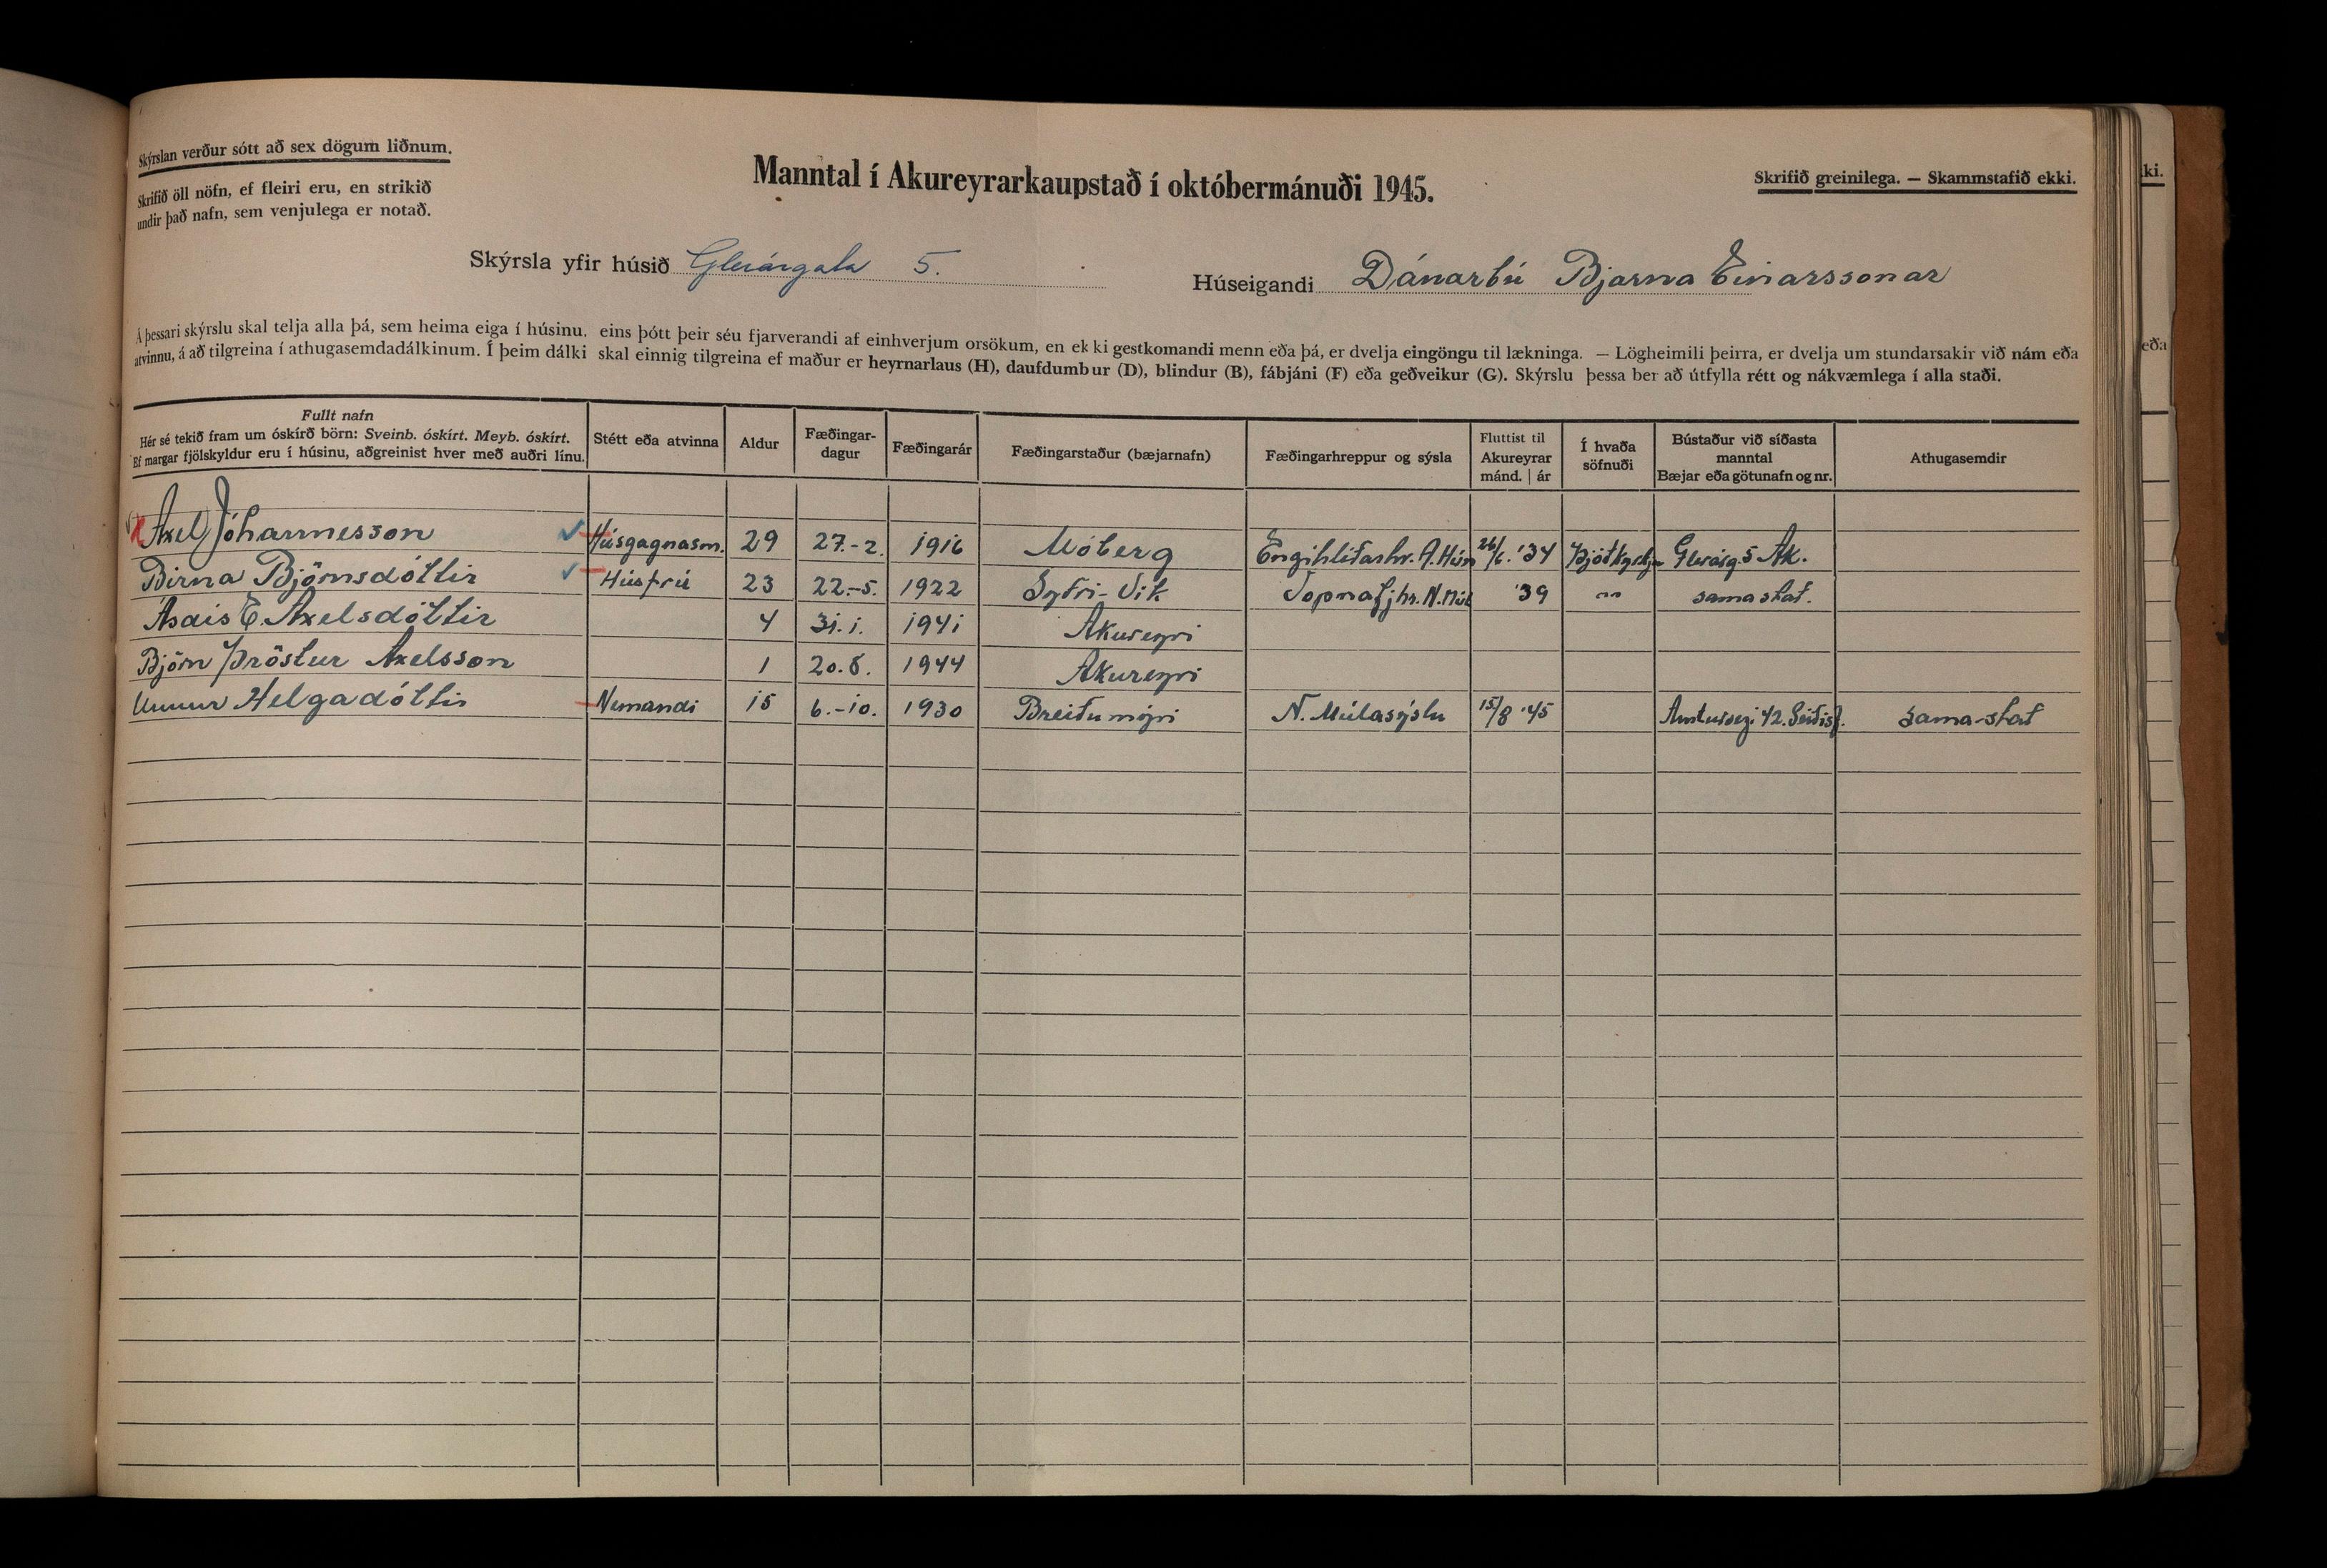 Skýrslan verður sótt að sex dögum liðnum.
Skrifið öll nöfn, ef fleiri eru, en strikið
undir það nafn, sem venjulega er notað.
Manntal í Akureyrarkaupstað í októbermánuði 1945.
Skrifið greinilega. — Skammstafið ekki.
Skýrsla yfir húsið Glerárgata 5.
Húseigandi Dánarbú Bjarna Einarssonar
Á þessari skýrslu skal telja alla þá, sem heima eiga í húsinu, eins þótt þeir séu fjarverandi af einhverjum orsökum, en ekki gestkomandi menn eða þá, er dvelja eingöngu til lækninga. — Lögheimili þeirra, er dvelja um stundarsakir við nám eða
atvinnu, á að tilgreina í athugasemdadálkinum. Í þeim dálki skal einnig tilgreina ef maður er heyrnarlaus (H), daufdumbur (D), blindur (B), fábjáni (F) eða geðveikur (G). Skýrslu þessa ber að útfylla rétt og nákvæmlega í alla staði.
Fullt nafn
Hér sé tekið fram um óskírð börn: Sveinb. óskírt. Meyb. óskírt.
Ef margar fjölskyldur eru í húsinu, aðgreinist hver með auðri línu.
Stétt eða atvinna
Aldur
Fæðingar-
dagur
Fæðingarár
Fæðingarstaður (bæjarnafn)
Fæðingarhreppur og sýsla
Fluttist til
Akureyrar
mánd. | ár
Í hvaða
söfnuði
Bústaður við síðasta
manntal
Bæjar eða götunafn og nr.
Athugasemdir
Axel Jóhannesson Húsgagnasm. 29 27.-2. 1916 Móberg Engihlíðarhr. A. Hún 26/6. '34 Þjóðkyrkja Glerárg. 5 Ak.
Birna Björnsdóttir Húsfrú 23 22.-5. 1922 Sytri-Vík Vopnafjhr. N. Múl '39 " sama stað.
Ásdís E. Axelsdóttir 4 31.1. 1941 Akureyri
Björn Þröstur Axelsson 1 20.8. 1944 Akureyri
Unnur Helgadóttir Nemandi 15 6.-10. 1930 Breiðumýri N. Múlasýslu 15/8 '45 Austurvegi 42. Seiðisf. sama-stað
ki.
eða